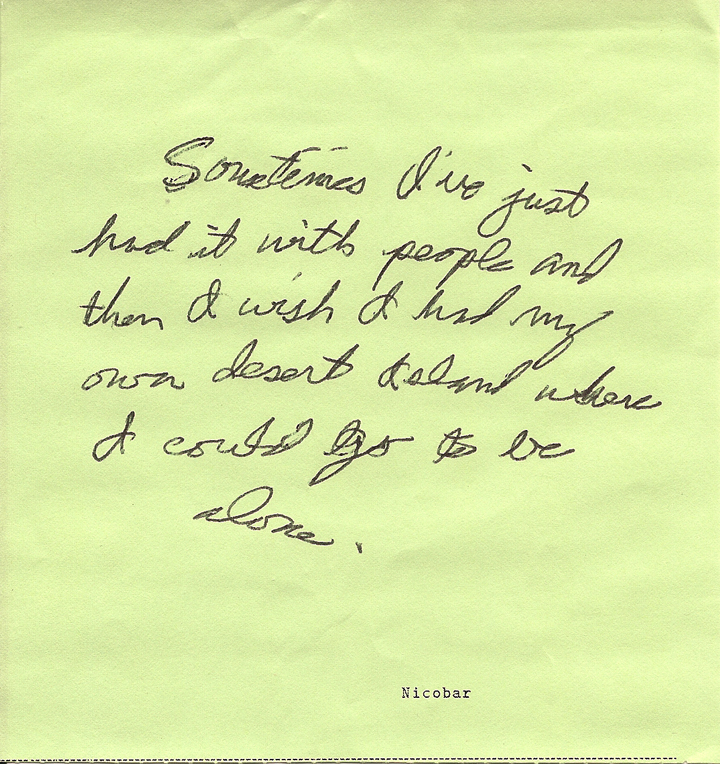 Sometimes I've just
had it with people and
then I wish I had my
own desert island where
I could go to be
alone.
Nicobar